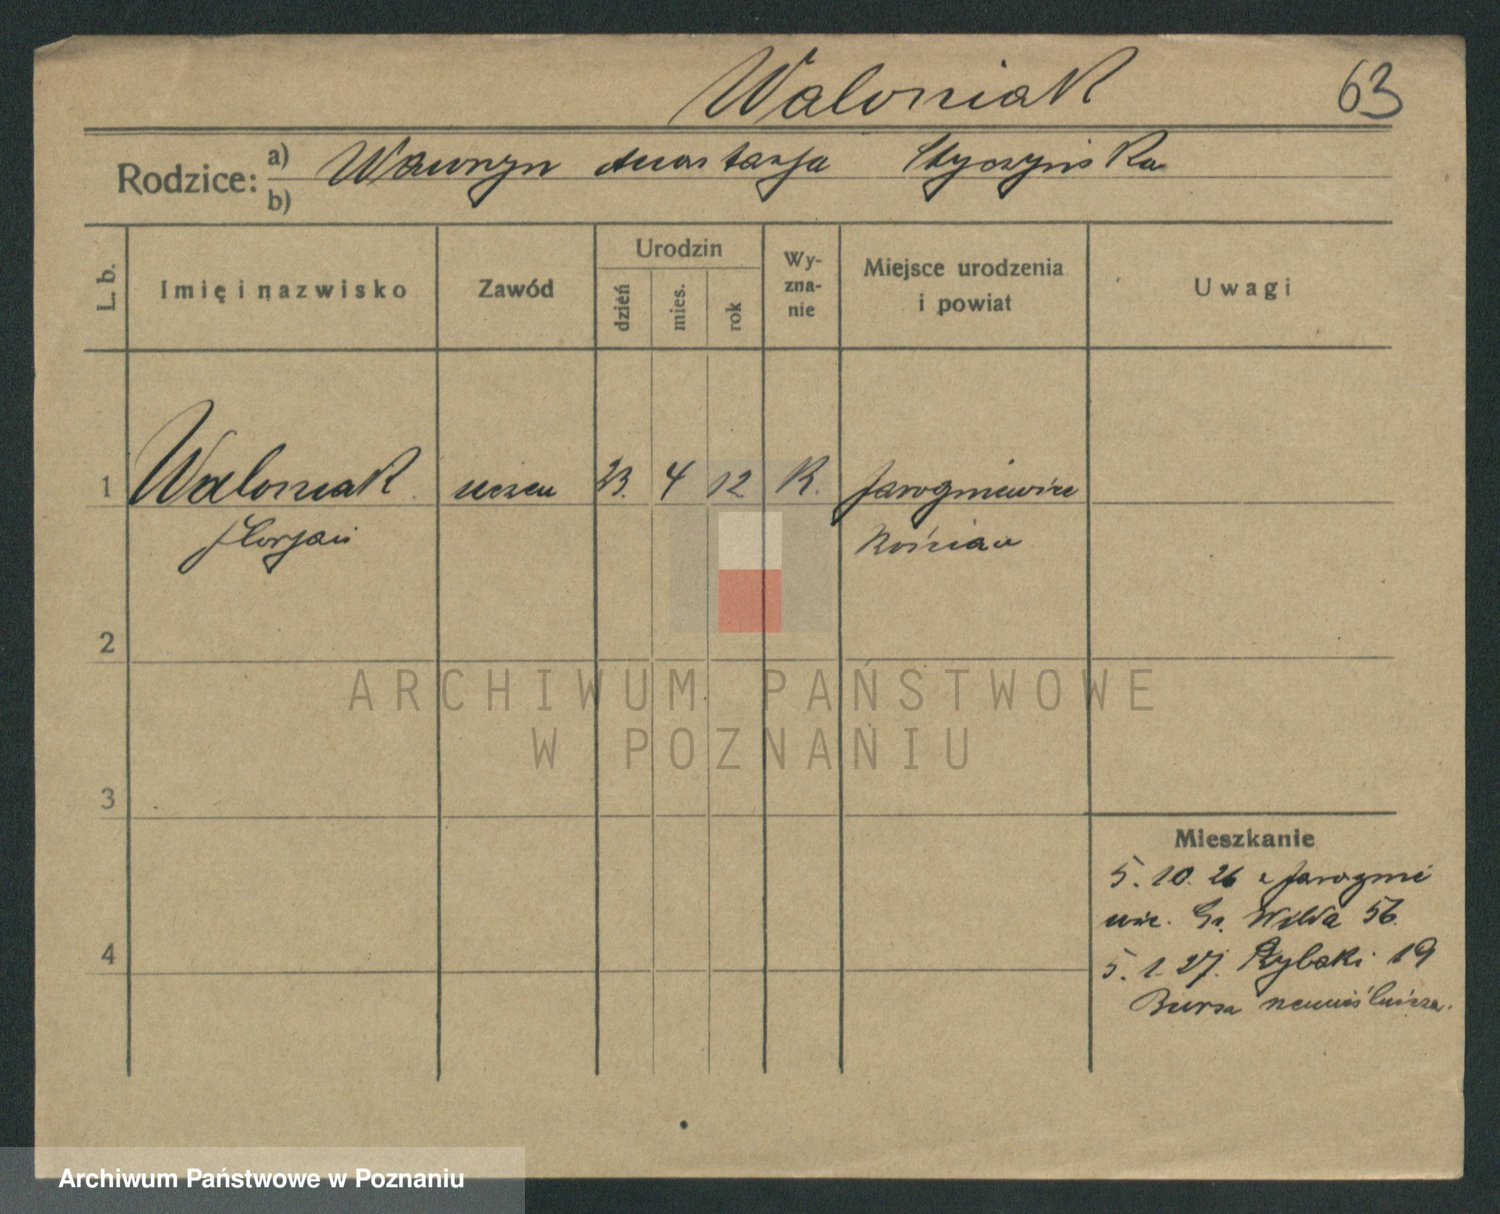 Waloniak
63
Rodzice: a) Wawrzyn Anastazja Styczyńska
b)
L. b.
Imię i nazwisko
Zawód
Urodzin
dzień
mies.
rok
Wy-
zna-
nie
Miejsce urodzenia
i powiat
Uwagi
1 Waloniak uczeń 23. 4 12 R. Jarogniewice
Florjan Kościan
2
3
4
Mieszkanie
5. 10. 26 z Jarognie
wic. G. Wilda 56.
5. 1. 27. Rybaki 19
Bursa rzemieślnicza.
ARCHIWUM PAŃSTWOWE
W POZNANIU
Archiwum Państwowe w Poznaniu